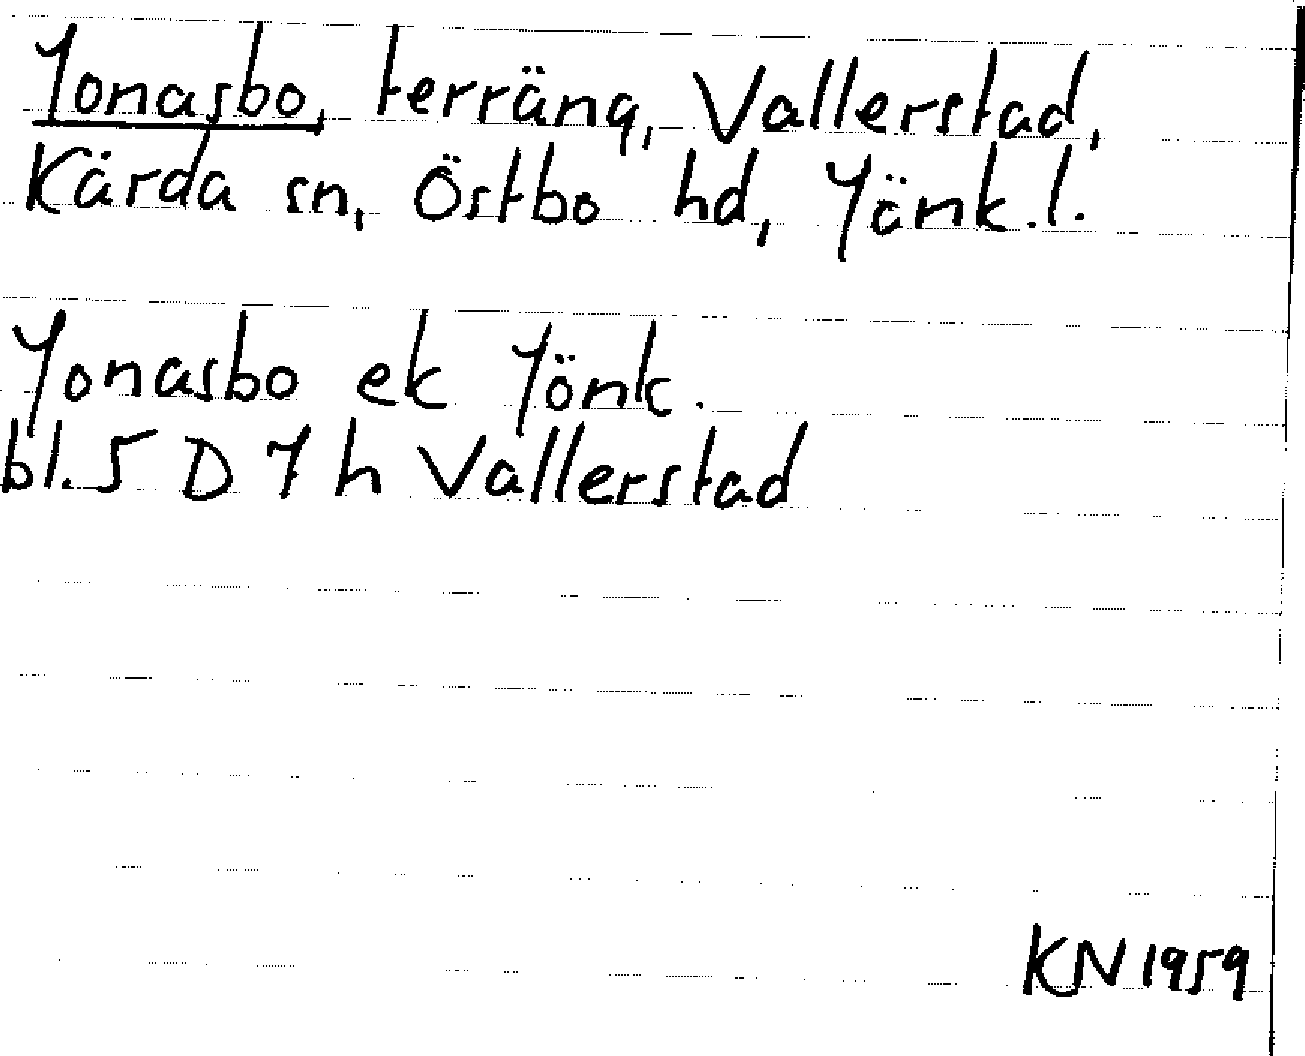 Jonasbo, terräng, Vallerstad,
Kärda sn, Östbo hd, Jönk.l.
Jonasbo ek Jönk.
bl. 5 D 7 h Vallerstad
KN 1959